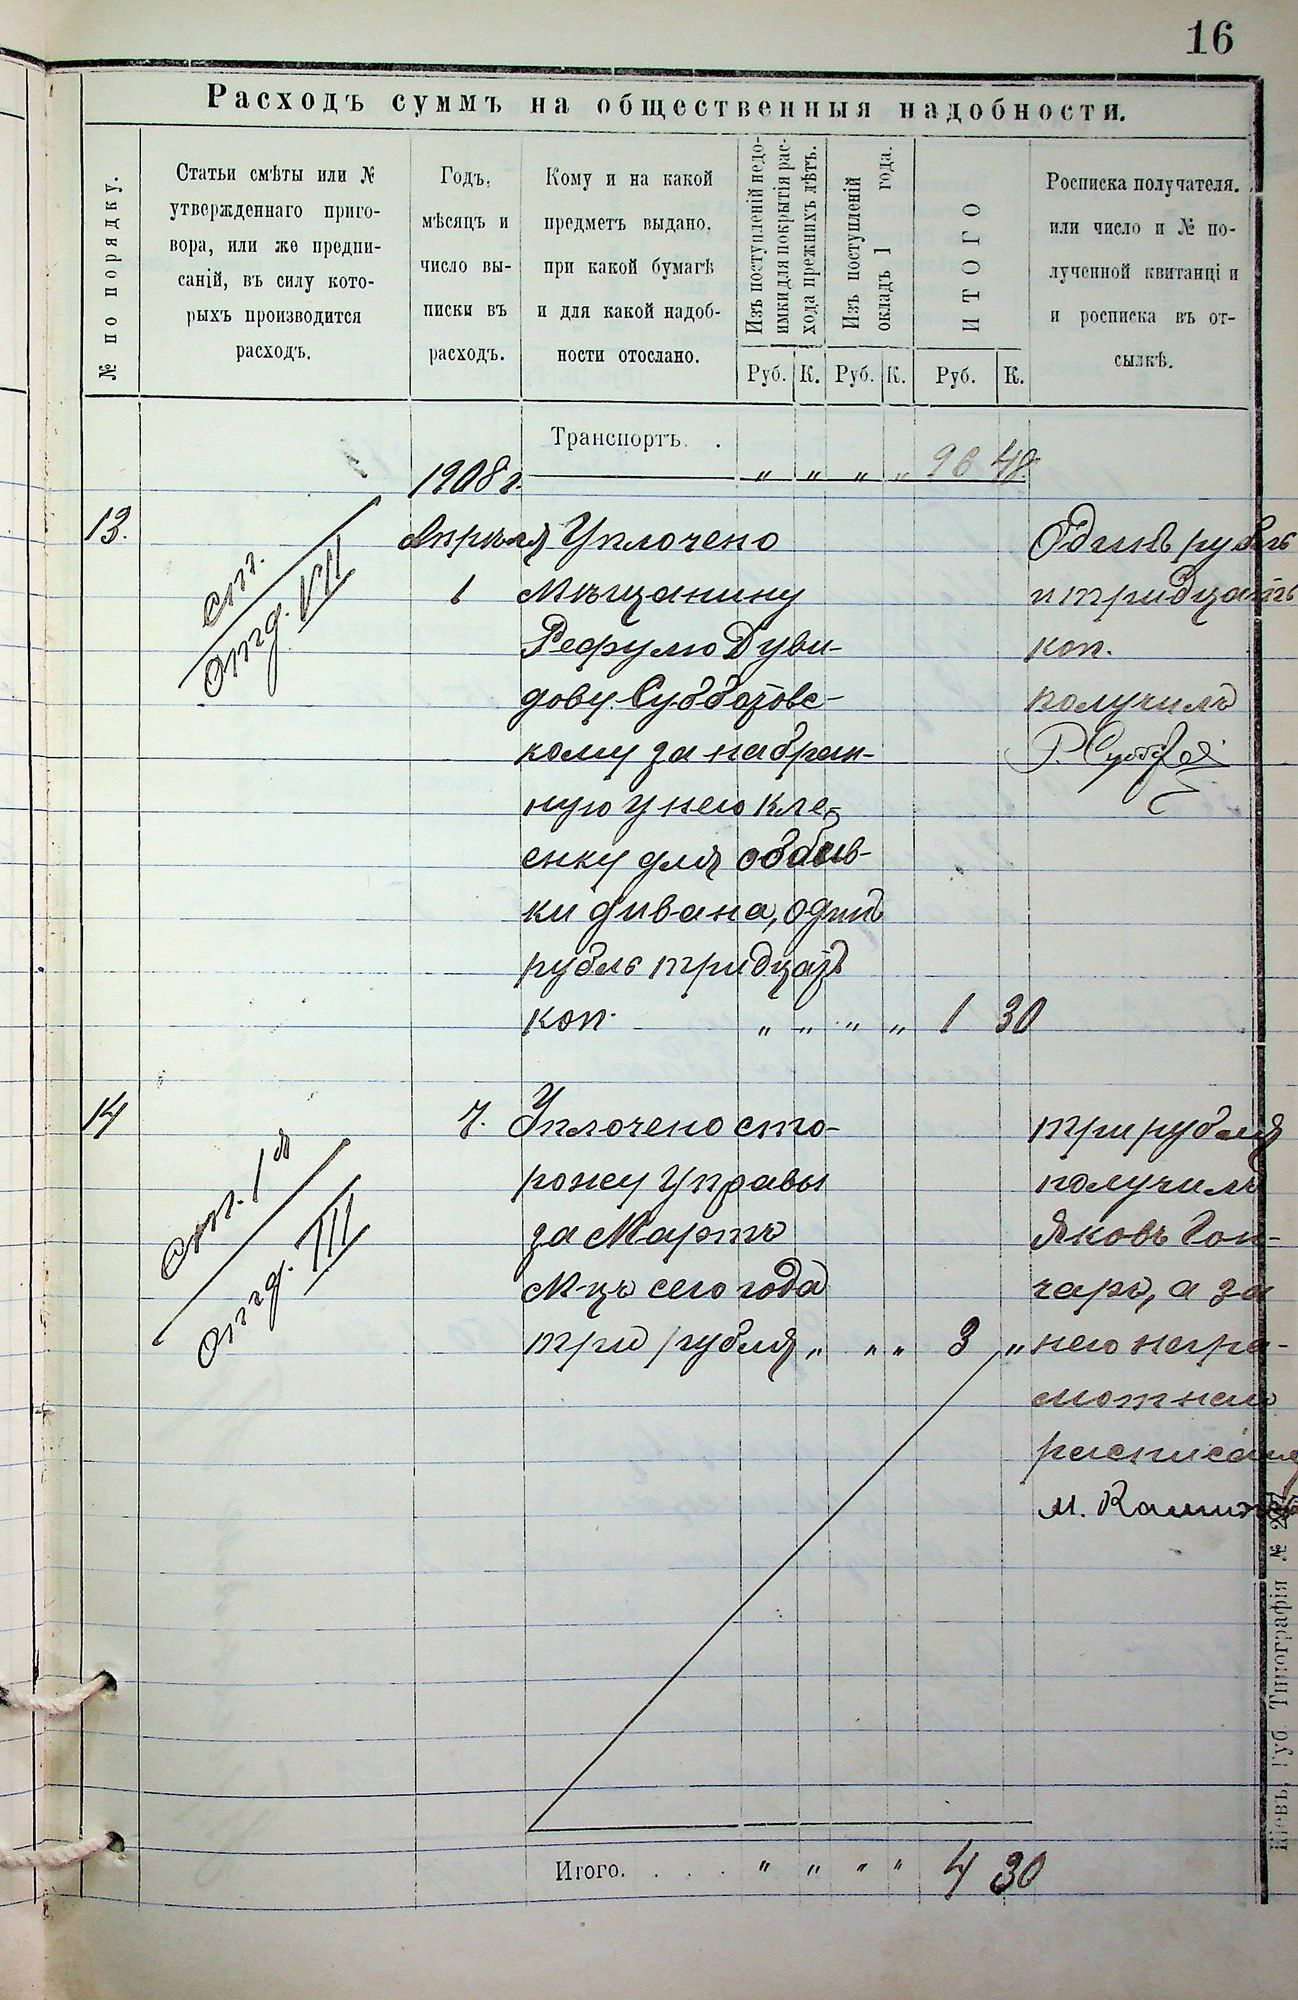 16
Расходъ суммъ на общественныя надобности.
№ по порядку.
Статьи смѣты или №
утвержденнаго приго-
вора, или же предпи-
саній, въ силу кото-
рыхъ производится
расходъ.
Годъ,
мѣсяцъ и
число вы-
писки въ
расходъ.
Кому и на какой
предметъ выдано,
при какой бумагѣ
и для какой надоб-
ности отослано.
Изъ поступленій недо-
имки для покрытія рас-
хода прежнихъ лѣтъ.
Изъ поступленій
окладъ 1 года.
ИТОГО
Росписка получателя.
или число и № по-
лученной квитанці и
и росписка въ от-
сылкѣ.
Руб. К. Руб. К. Руб. К.
Транспортъ. .
1908 г. „ „ „ „ 96 48
13.
ст.
отд. VII
Апрѣля
1
Уплочено
Мѣщанину
Рефулю Дуви-
дову Субботовс-
кому за набран-
ную у него кле-
енку для оббив-
ки дивана, одинъ
рубль тридцать
коп. „ „ „ „ 1 30
Одинъ рубль
и тридцать
коп.
получилъ
14
ст. 1я
отд. III
7.
Уплочено сто-
рожу Управы
за Мартъ
М-цъ сего года
три рубля „ „ „ 3 „
три рубля
получилъ
Яковъ Гон-
чаръ, а за
него негра-
мотнаго
М.
Итого. . . . „ „ „ „ 4 30
Кіевъ, Губ. Типографія №